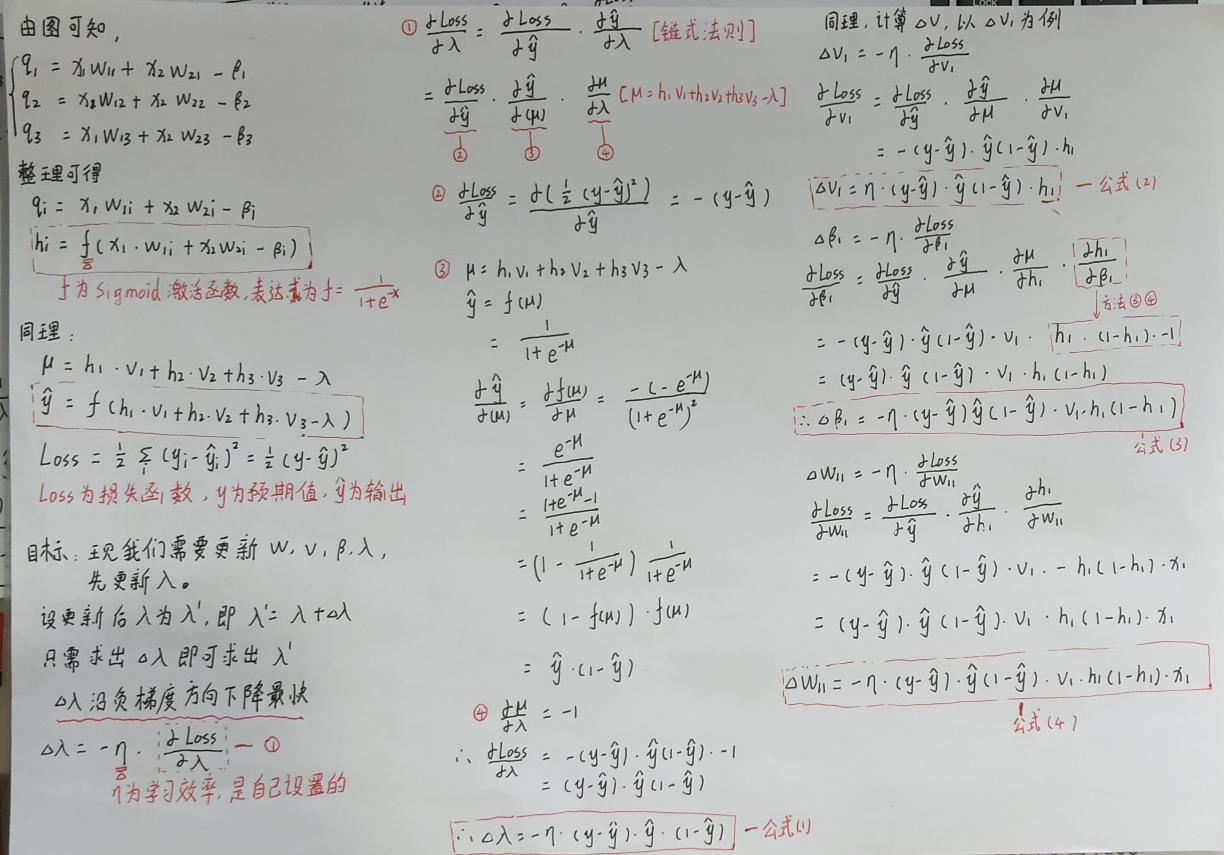 由图可知,
q₁ = x₁w₁₁ + x₂w₂₁ - β₁
q₂ = x₁w₁₂ + x₂w₂₂ - β₂
q₃ = x₁w₁₃ + x₂w₂₃ - β₃
整理可得
qᵢ = x₁w₁ᵢ + x₂w₂ᵢ - βᵢ
hᵢ = f(x₁·w₁ᵢ + x₂w₂ᵢ - βᵢ)
f为Sigmoid激活函数,表达式为f = 1/(1+e^-x)
同理:
μ = h₁·v₁ + h₂·v₂ + h₃·v₃ - λ
ŷ = f(h₁·v₁ + h₂·v₂ + h₃·v₃ - λ)
Loss = ½ Σᵢ (yᵢ-ŷᵢ)² = ½ (y-ŷ)²
Loss为损失函数,y为预期值,ŷ为输出
目标:现我们需要更新 w, v, β, λ,
先更新λ。
设更新后λ为λ', 即 λ' = λ + Δλ
只需求出 Δλ 即可求出 λ'
Δλ沿负梯度方向下降最快
Δλ = -η · ∂Loss/∂λ — ①
η为学习效率,是自己设置的
① ∂Loss/∂λ = ∂Loss/∂ŷ · ∂ŷ/∂λ [链式法则]
= ∂Loss/∂ŷ · ∂ŷ/∂(μ) · ∂μ/∂λ [μ = h₁v₁+h₂v₂+h₃v₃-λ]
② ③ ④
② ∂Loss/∂ŷ = ∂(½(y-ŷ)²)/∂ŷ = -(y-ŷ)
③ μ = h₁v₁ + h₂v₂ + h₃v₃ - λ
ŷ = f(μ)
= 1/(1+e^-μ)
∂ŷ/∂(μ) = ∂f(μ)/∂μ = -(-e^-μ)/(1+e^-μ)²
= e^-μ/(1+e^-μ)
= (1+e^-μ-1)/(1+e^-μ)
= (1 - 1/(1+e^-μ)) 1/(1+e^-μ)
= (1-f(μ))·f(μ)
= ŷ·(1-ŷ)
④ ∂μ/∂λ = -1
∴ ∂Loss/∂λ = -(y-ŷ)·ŷ(1-ŷ)·-1
= (y-ŷ)·ŷ(1-ŷ)
∴Δλ = -η·(y-ŷ)·ŷ·(1-ŷ) — 公式(1)
同理,计算ΔV,以ΔV₁为例
ΔV₁ = -η · ∂Loss/∂V₁
∂Loss/∂V₁ = ∂Loss/∂ŷ · ∂ŷ/∂μ · ∂μ/∂V₁
= -(y-ŷ)·ŷ(1-ŷ)·h₁
ΔV₁ = η·(y-ŷ)·ŷ(1-ŷ)·h₁ — 公式(2)
Δβ₁ = -η · ∂Loss/∂β₁
∂Loss/∂β₁ = ∂Loss/∂ŷ · ∂ŷ/∂μ · ∂μ/∂h₁ · ∂h₁/∂β₁
方法③④
= -(y-ŷ)·ŷ(1-ŷ)·v₁· h₁·(1-h₁)·-1
= (y-ŷ)·ŷ(1-ŷ)·v₁·h₁(1-h₁)
∴Δβ₁ = -η·(y-ŷ)ŷ(1-ŷ)·v₁·h₁(1-h₁)
公式(3)
ΔW₁₁ = -η · ∂Loss/∂W₁₁
∂Loss/∂W₁₁ = ∂Loss/∂ŷ · ∂ŷ/∂h₁ · ∂h₁/∂W₁₁
= -(y-ŷ)·ŷ(1-ŷ)·v₁·-h₁(1-h₁)·x₁
= (y-ŷ)·ŷ(1-ŷ)·v₁·h₁(1-h₁)·x₁
ΔW₁₁ = -η·(y-ŷ)·ŷ(1-ŷ)·v₁·h₁(1-h₁)·x₁
公式(4)